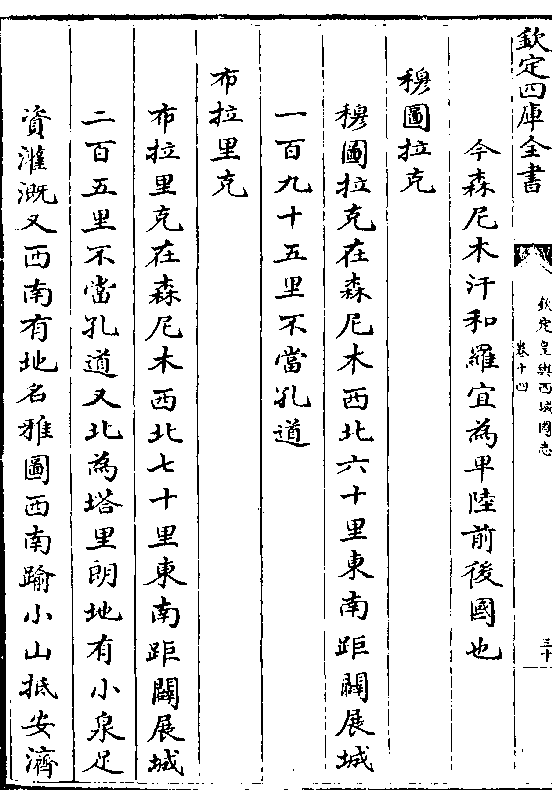 欽定四庫全書
欽定皇輿西域圖志
卷十四
三十
今森尼木汗和羅宜為卑陸前後國也
穆圖拉克
穆圖拉克在森尼木西北六十里東南距闢展城
一百九十五里不當孔道
布拉里克
布拉里克在森尼木西北七十里東南距闢展城
二百五里不當孔道又北為塔里朗地有小泉足
資灌溉又西南有地名雅圖西南踰小山抵安濟